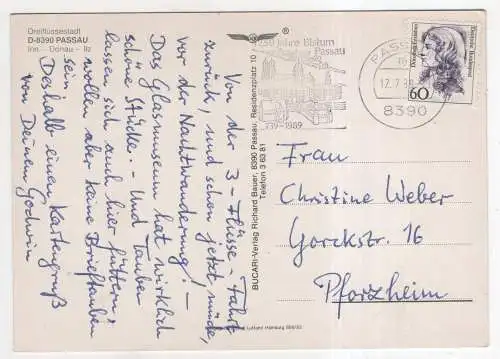 Dreiflüssestadt
D-8390 PASSAU
Inn - Donau - Ilz
Von der 3-Flüsse-Fahrt
zurück, und schon jetzt müde,
vor der Nachtwanderung! -
Das Glasmuseum hat wirklich
schöne Stücke. - Und Tauben
lassen sich auch hier füttern,
wollen aber keine Brieftauben
sein.
Deshalb einen Kartengruß
von Deinem Godwin
BUCARI-Verlag Richard Bauer, 8390 Passau, Residenzplatz 10
Telefon 3 63 81
1250 Jahre Bistum
Passau
739-1989
PASSAU
8390
Deutsche Bundespost
60
Frau
Christine Weber
Gorckstr. 16
Pforzheim